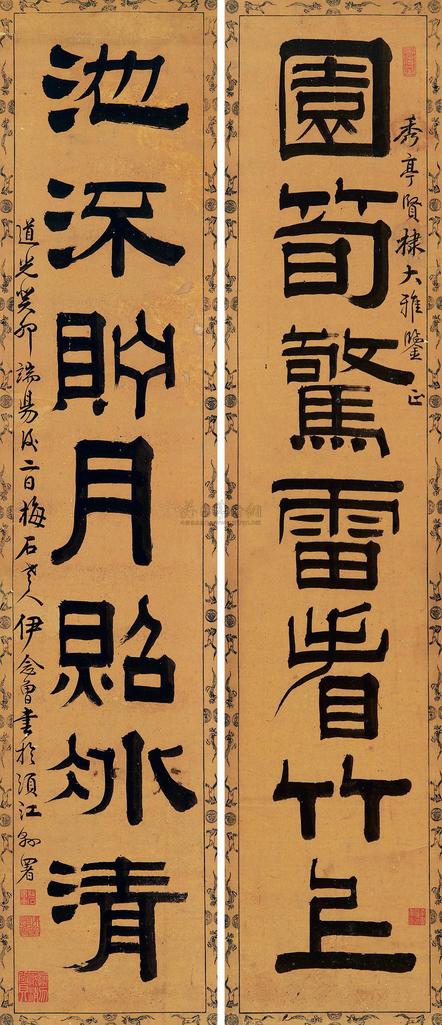 秀亭賢棣大雅鑒正
園筍驚雷看竹上
池深貯月照冰清
道光癸卯端昜後二日梅石老人伊念曾書於須江縣署